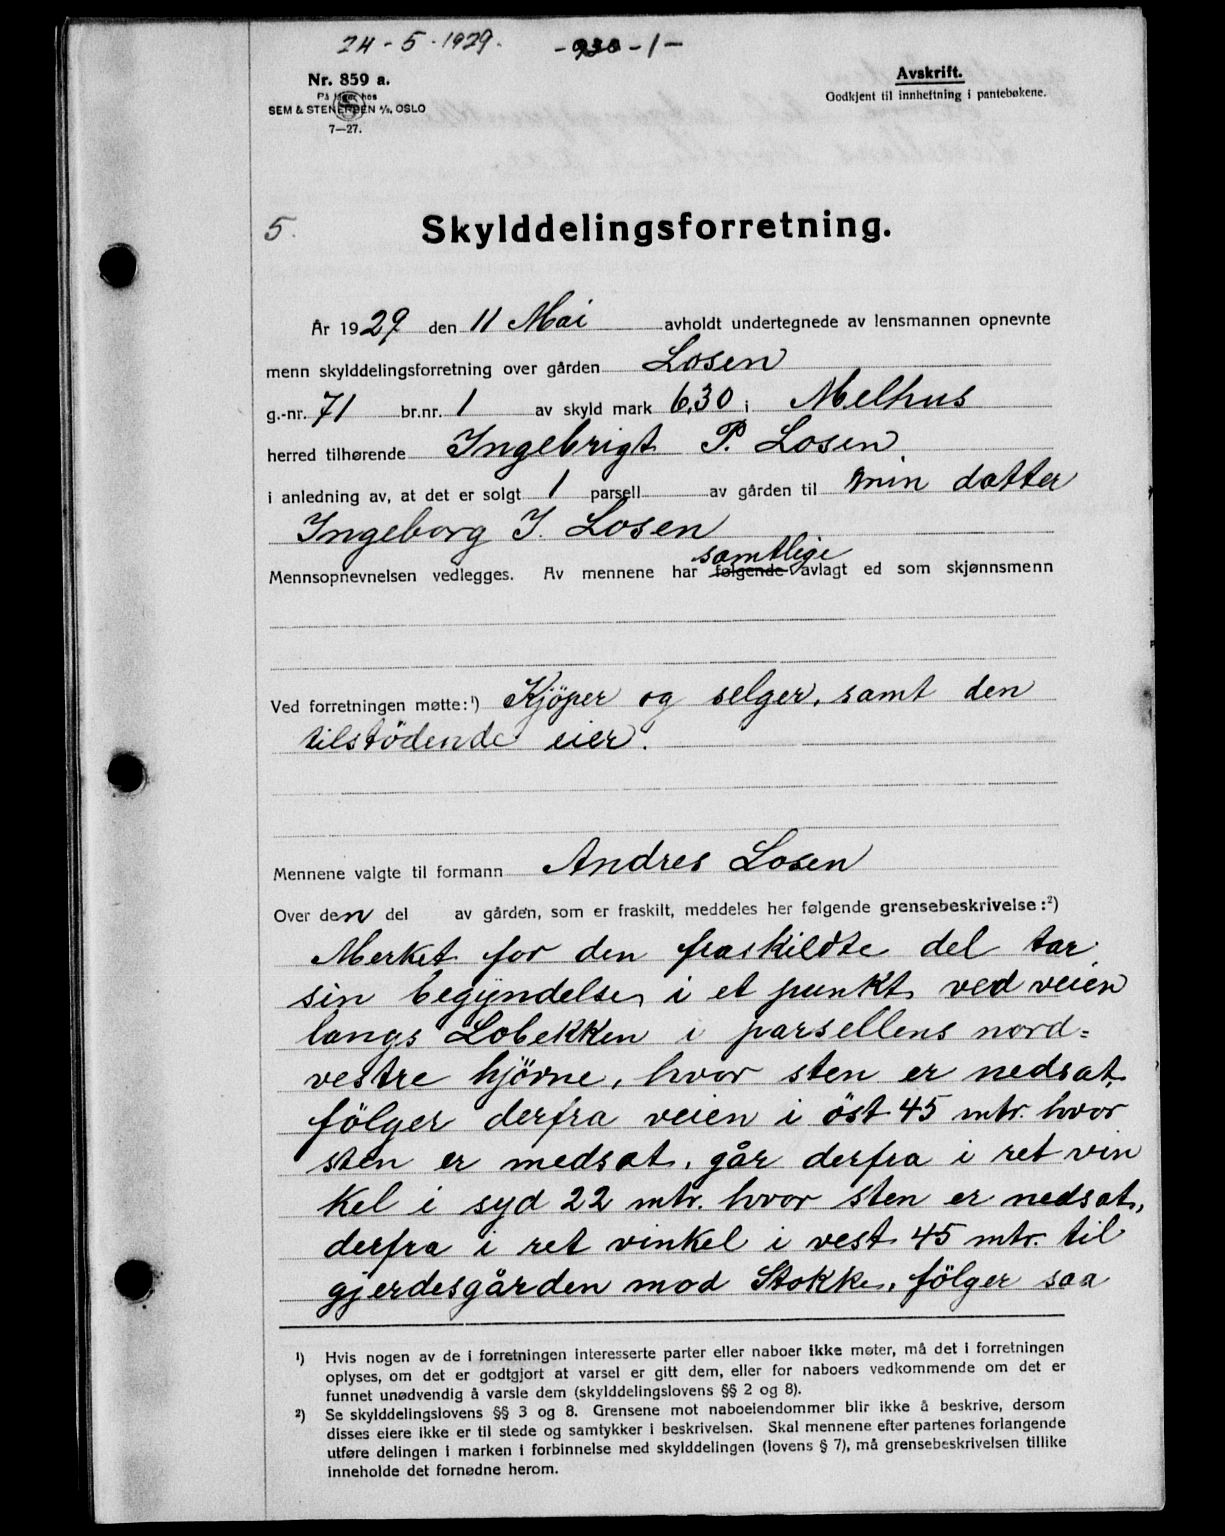 24-5-1929. -930-1-
Nr. 859 a.
På lager hos
SEM & STENERSEN A/S, OSLO
7—27.
Avskrift.
Godkjent til innheftning i pantebøkene.
5.
Skylddelingsforretning.
År 1929 den 11 Mai avholdt undertegnede av lensmannen opnevnte
menn skylddelingsforretning over gården Losen
g.-nr. 71 br.nr. 1 av skyld mark 6,30 i Melhus
herred tilhørende Ingebrigt P. Losen
i anledning av, at det er solgt 1 parsell av gården til min datter
Ingeborg I. Losen
samtlige
Mennsopnevnelsen vedlegges. Av mennene har følgende avlagt ed som skjønnsmenn
Ved forretningen møtte:¹) Kjöper og selger, samt den
tilstödende eier.
Mennene valgte til formann Andres Losen
Over den del av gården, som er fraskilt, meddeles her følgende grensebeskrivelse:²)
Merket for den fraskildte del tar
sin begyndelse i et punkt ved veien
langs Lobekken i parsellens nord=
vestre hjörne, hvor sten er nedsat
fölger derfra veien i öst 45 mtr. hvor
sten er medsat, går derfra i ret vin
kel i syd 22 mtr. hvor sten er nedsat,
derfra i ret vinkel i vest 45 mtr. til
gjerdesgården mod Stokke, fölger saa
¹) Hvis nogen av de i forretningen interesserte parter eller naboer ikke møter, må det i forretningen
oplyses, om det er godtgjort at varsel er gitt dem, eller for naboers vedkommende om det er
funnet unødvendig å varsle dem (skylddelingslovens §§ 2 og 8).
²) Se skylddelingslovens §§ 3 og 8. Grensene mot naboeiendommer blir ikke å beskrive, dersom
disses eiere ikke er til stede og samtykker i beskrivelsen. Skal mennene efter partenes forlangende
utføre delingen i marken i forbinnelse med skylddelingen (lovens § 7), må grensebeskrivelsen tillike
inneholde det fornødne herom.